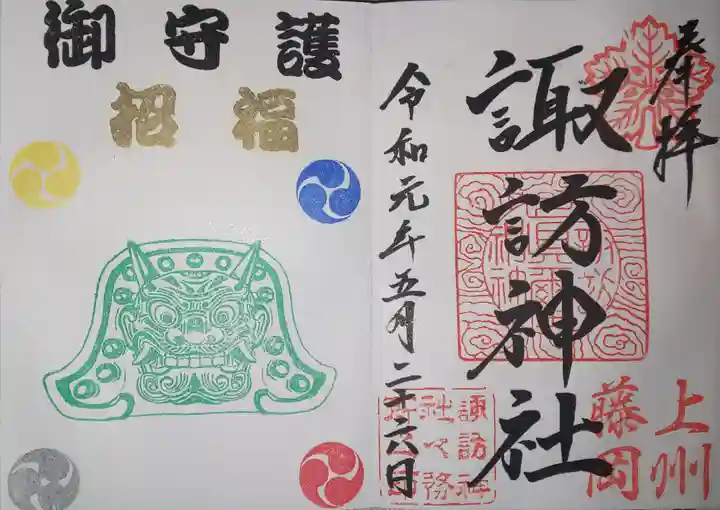 奉拝
諏訪神社
上州
藤岡
諏訪神
社々務
所之印
令和元年五月二十六日
御守護
招福